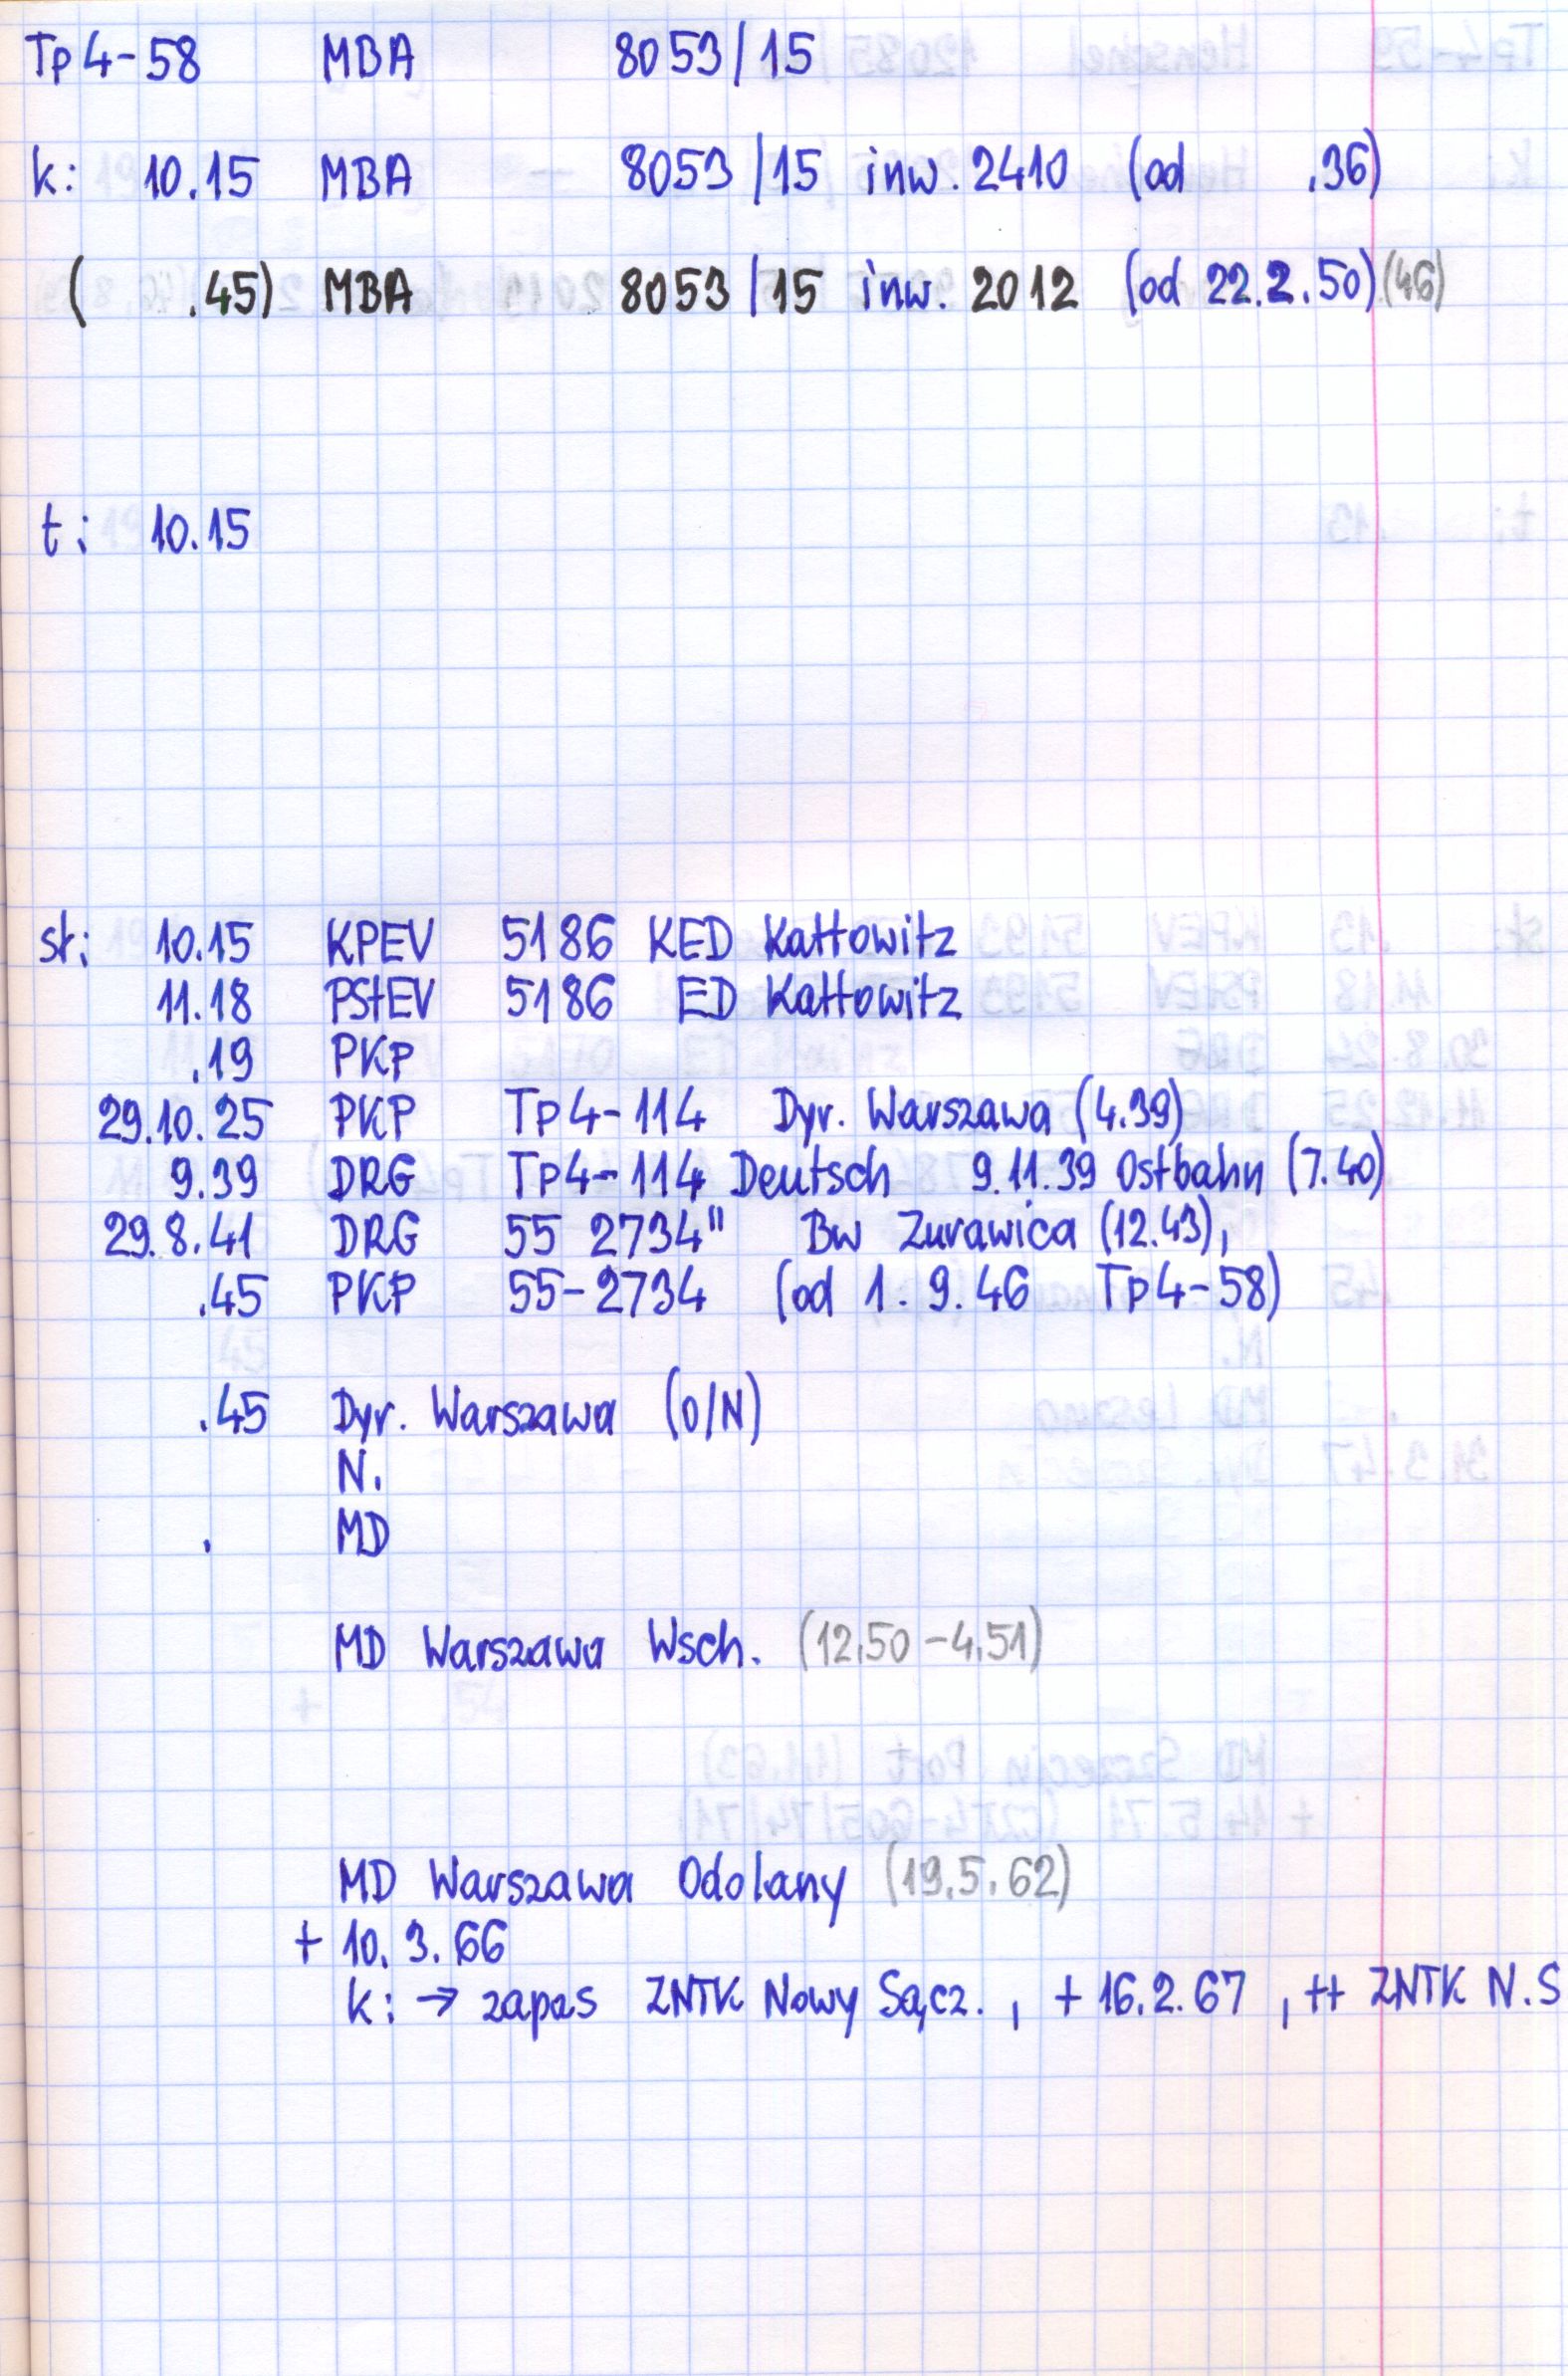 Tp4-58 MBA 8053/15
k: 10.15 MBA 8053/15 inw. 2410 (od .36)
( .45) MBA 8053/15 inw. 2012 (od 22.2.50) (46)
t: 10.15
st: 10.15 KPEV 5186 KED Kattowitz
11.18 PStEV 5186 ED Kattowitz
.19 PKP
29.10.25 PKP Tp4-114 Dyr. Warszawa (4.39)
9.39 DRG Tp4-114 Deutsch 9.11.39 Ostbahn (7.40)
29.8.41 DRG 55 2734" Bw Zurawica (12.43),
.45 PKP 55-2734 (od 1.9.46 Tp4-58)
.45 Dyr. Warszawa (O/N)
N.
. MD
MD Warszawa Wsch. (12.50-4.51)
MD Warszawa Odolany (19.5.62)
+ 10.3.66
k: → zapas ZNTK Nowy Sącz. , + 16.2.67 , ++ ZNTK N.S